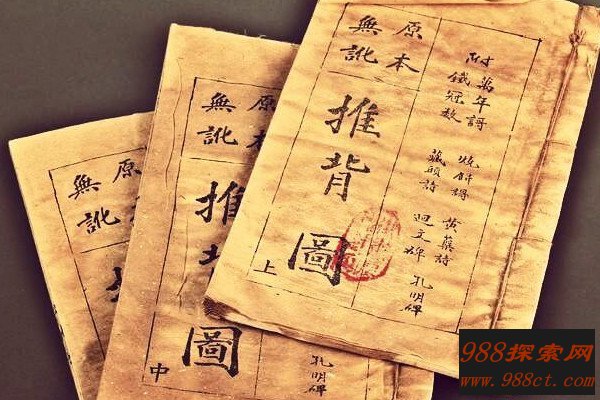 附
萬年謌 燒餅謌 黃蘗詩 孔明碑
鐵冠數 藏頭詩 迴文碑
原本
無訛
推背圖
上
原本
無訛
推背圖
中
孔明碑
原
無訛
988探索网
www.988ct.com